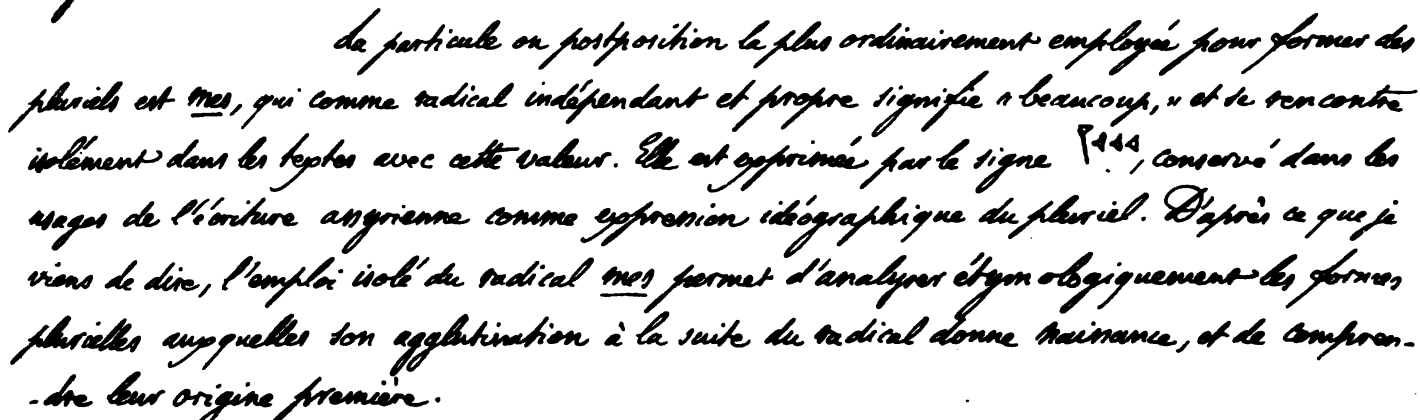 La particule ou postposition la plus ordinairement employée pour former des
pluriels est mes, qui comme radical indépendant et propre signifie « beaucoup, » et se rencontre
isolément dans les textes avec cette valeur. Elle est exprimée par le signe 𒈨𒌍, conservé dans les
usages de l'écriture assyrienne comme expression idéographique du pluriel. D'après ce que je
viens de dire, l'emploi isolé du radical mes permet d'analyser étymologiquement les formes
plurielles auxquelles son agglutination à la suite du radical donne naissance, et de compren-
-dre leur origine première.